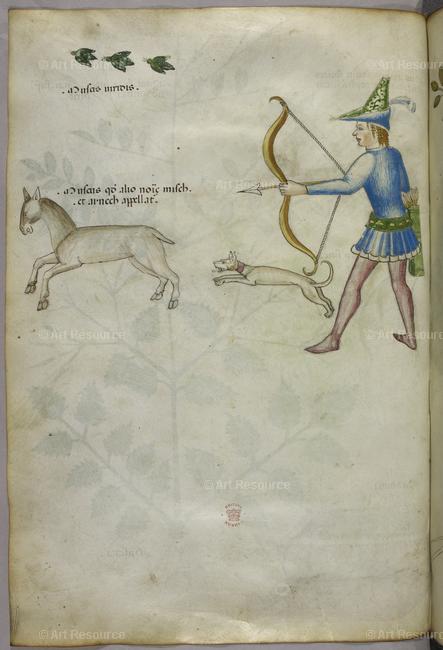 . Muscus viridis .
. Muscus qđ alio noīe misch .
. et arnech appellat᷑ .
© Art Resource
© Art Resource
© Art Resource
© Art Resource
© Art Resource
© Art Resource
© Art Resource